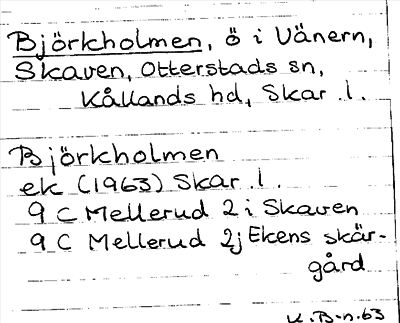 Björkholmen, ö i Vänern,
Skaven, Otterstads sn,
Kållands hd, Skar. l.
Björkholmen
ek (1963) Skar. l.
9 C Mellerud 2 i Skaven
9 C Mellerud 2j Ekens skär-
gård
K. B-n. 63